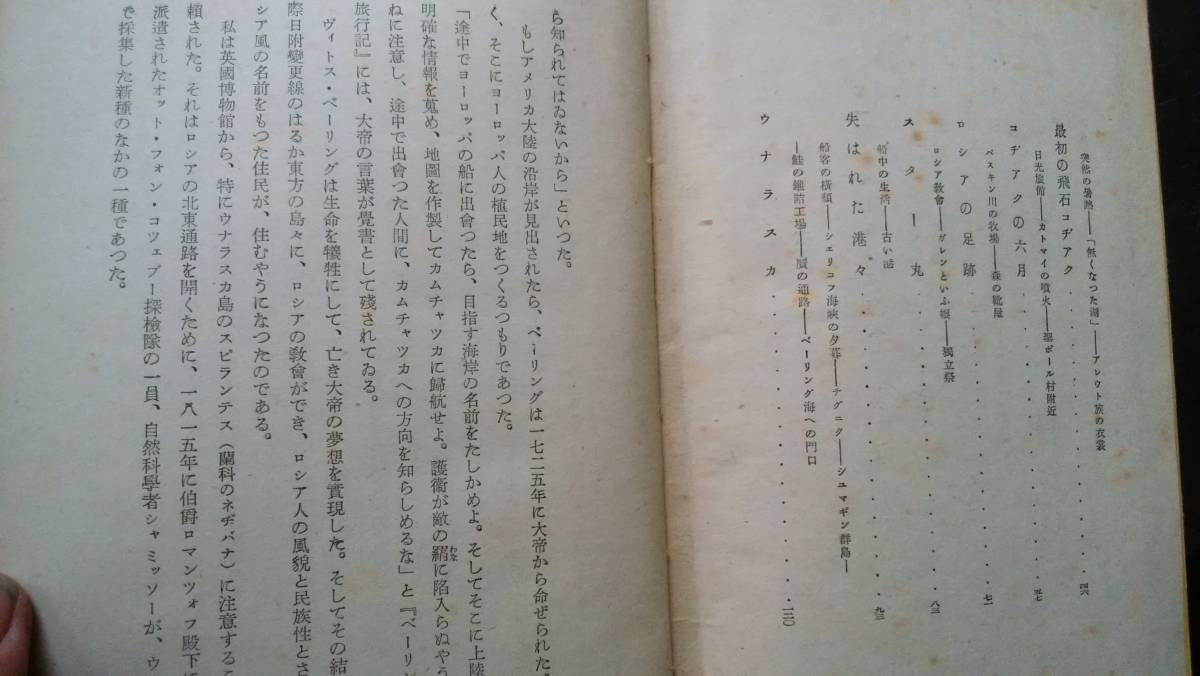 突然の暑熱――「無くなつた湖」――アレウト族の衣裳
最初の飛石コヂアク・・・・・・・・・・四六
日光旅館――カトマイの噴火――聖ポール村附近
コヂアクの六月・・・・・・・・・・五七
バスキン川の牧場――森の靴屋
ロシアの足跡・・・・・・・・・・七一
ロシア敎會――ガレンといふ姬――獨立祭
スター丸・・・・・・・・・・八三
船中の生活――古い話
失はれた港々・・・・・・・・・・九三
船客の橫顏――シェリコフ海峽の夕暮――チグニク――シユマギン群島――
――鮭の罐詰工場――贋の通路――ベーリング海への門口
ウナラスカ・・・・・・・・・・一二〇
ら知られてはゐないから」といつた。
もしアメリカ大陸の沿岸が見出されたら、ベーリングは一七二五年に大帝から命ぜられた
く、そこにヨーロッパ人の植民地をつくるつもりであつた。
「途中でヨーロッパの船に出會つたら、目指す海岸の名前をたしかめよ。そしてそこに上陸
明確な情報を蒐め、地圖を作製してカムチャツカに歸航せよ。護衞が敵の羂わなに陷入らぬやう
ねに注意し、途中で出會つた人間に、カムチャツカへの方向を知らしめるな」と『ベーリン
旅行記』には、大帝の言葉が覺書として殘されてゐる。
ヴィトス・ベーリングは生命を犧牲にして、亡き大帝の夢想を實現した。そしてその結
際日附變更線のはるか東方の島々に、ロシアの敎會ができ、ロシア人の風貌と民族性とさ
シア風の名前をもつた住民が、住むやうになつたのである。
私は英國博物館から、特にウナラスカ島のスピランテス（蘭科のネヂバナ）に注意するこ
賴された。それはロシアの北東通路を開くために、一八一五年に伯爵ロマンツォフ殿下に
派遣されたオット・フォン・コツェブー探檢隊の一員、自然科學者シャミッソーが、ウ
で採集した新種のなかの一種であつた。